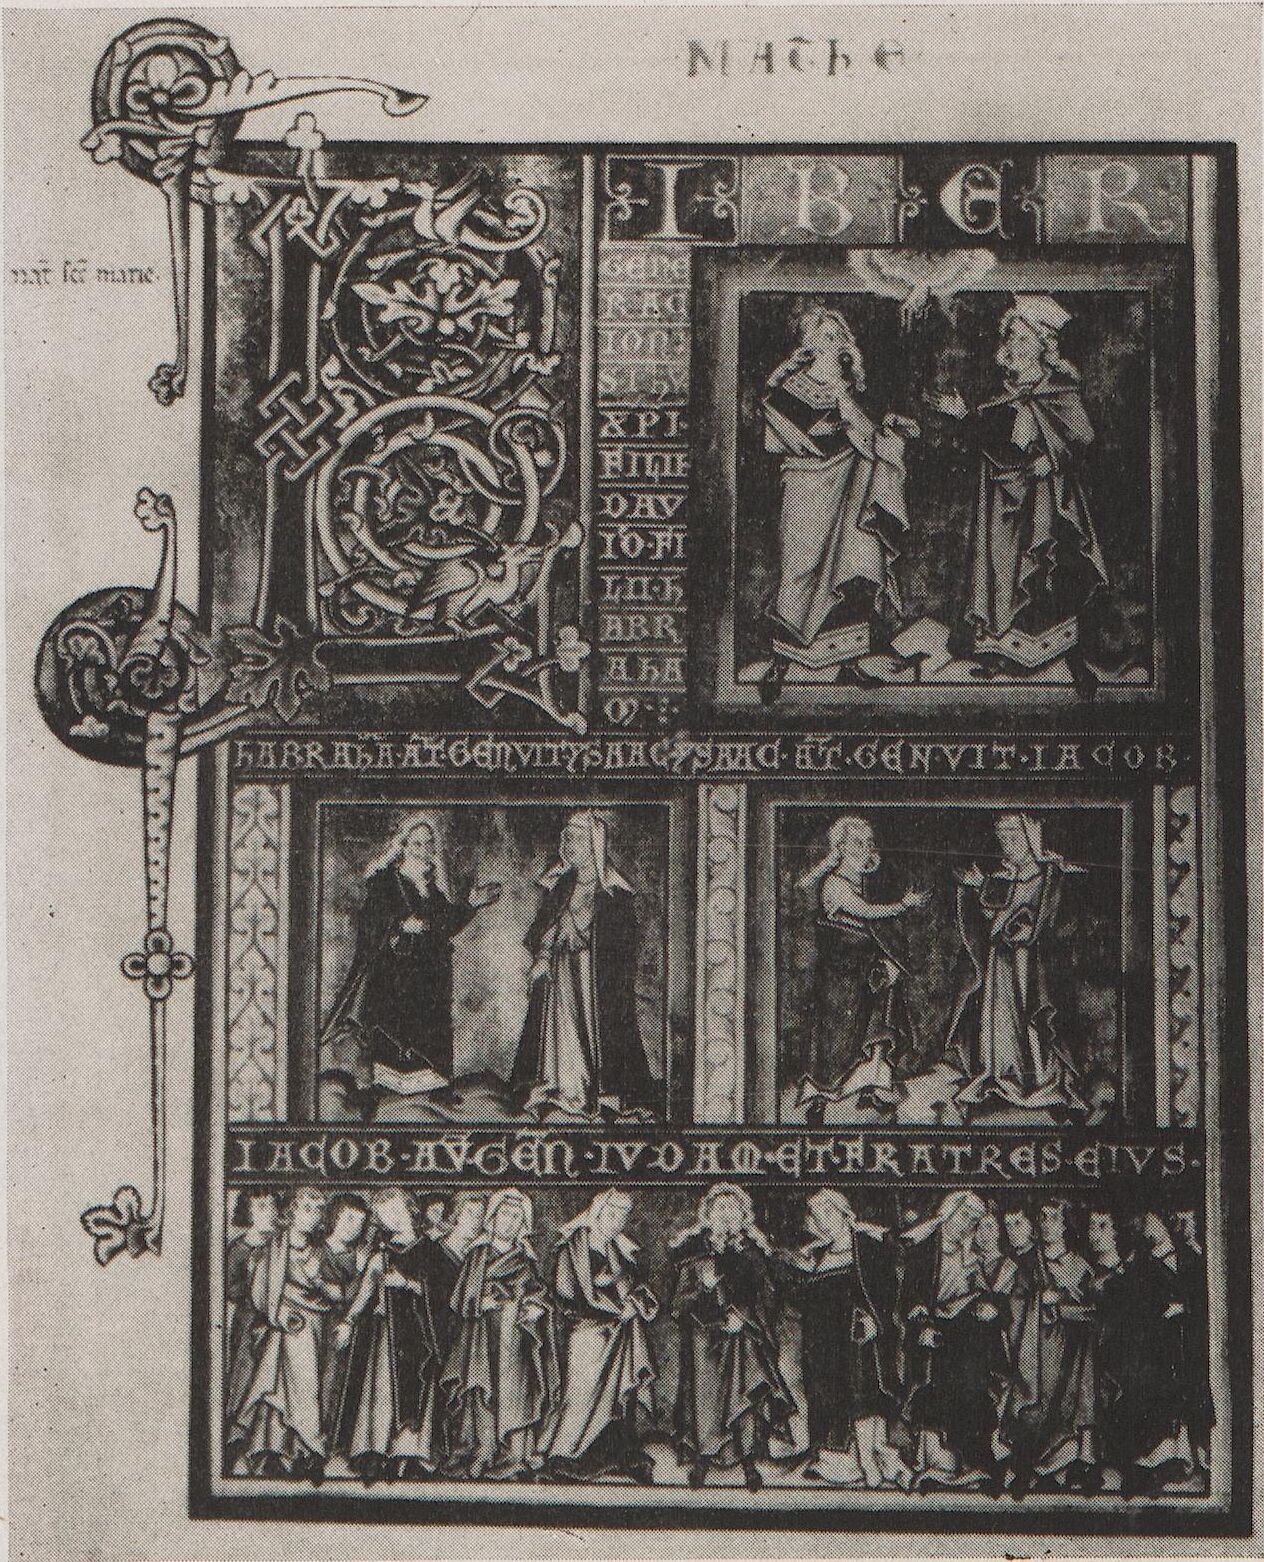 MATHE
nat̄ sc̄e marie.
L IBER
GENE
RAC
ION:
S IHV
XPI.
FILII
DAV
ID·FI
LII·h
ABR
AhA
M
hABRAhA·AT̄·GENVIT YSAAC·YSAAC·AT̄·GEN·VIT·IACOB·
IACOB·AV̄·GEN̄·IVDAM·ET·FRATRES·EIVS·